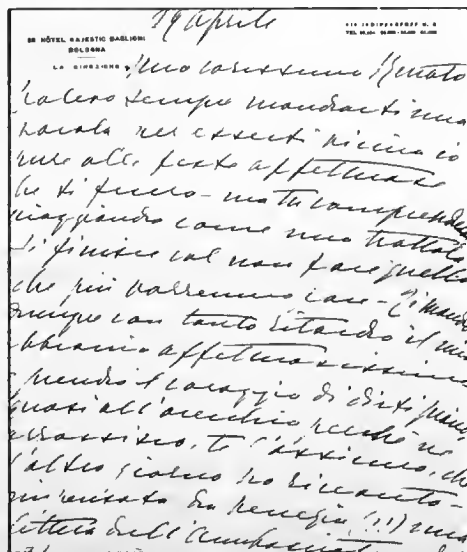 29 Aprile
SB HÔTEL MAJESTIC BAGLIONI
BOLOGNA
LA DIREZIONE
VIA INDIPENDENZA N. 8
Mio carissimo Renato
volevo sempre mandarti una
parola per esserti vicina io
pure alle feste affettuose
che ti fecero - ma tu comprendi
viaggiando come una trottola
si finisce col non fare quello
che più vorremmo fare - Ti mando
dunque con tanto ritardo il mio
abbraccio affettuosissimo
e prendo il coraggio di dirti piano,
quasi all'orecchio perchè ne
arrossisco, te l'assicuro, che
l'altro giorno ho
da Venezia (!!) una
lettera dell'